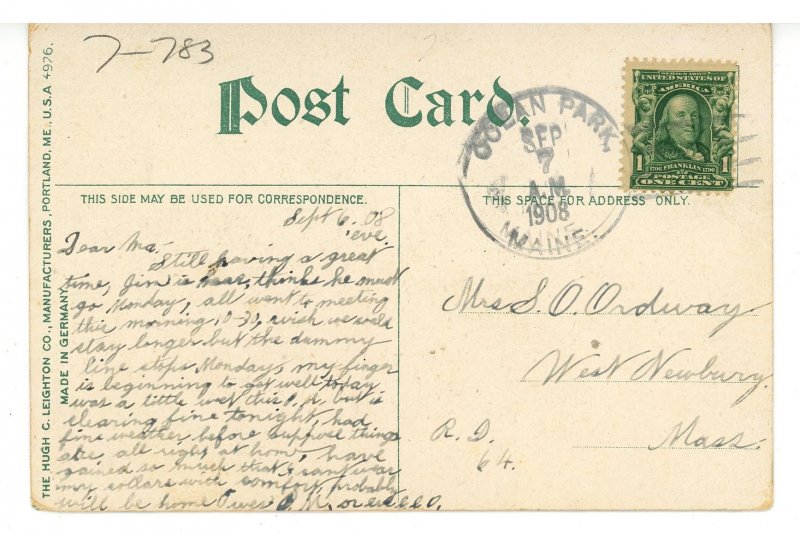 7-783
Post Card.
THE HUGH C. LEIGHTON CO., MANUFACTURERS, PORTLAND, ME., U.S.A 4976.
MADE IN GERMANY
SERIES 1902
UNITED STATES OF
AMERICA
1 1706 FRANKLIN 1790 1
POSTAGE
ONE CENT
OCEAN PARK,
SEP
7
A.M
1908
MAINE.
THIS SIDE MAY BE USED FOR CORRESPONDENCE.
THIS SPACE FOR ADDRESS ONLY.
Sept 6, 08
eve.
Dear Ma.
Still having a great
time, Jim is here, thinks he must
go Monday, all went to meeting
this morning 10-30, wish we could
stay longer but the dummy
line stops Monday, my finger
is beginning to get well today
was a little wet this P.M. but is
clearing fine tonight, had
fine weather before suppose things
are all right at home, have
gained so much that I cant wear
my collars with comfort probably
will be home Tues P.M. or eve
Mrs S. O. Ordway
West Newbury
Mass.
R. D.
64.